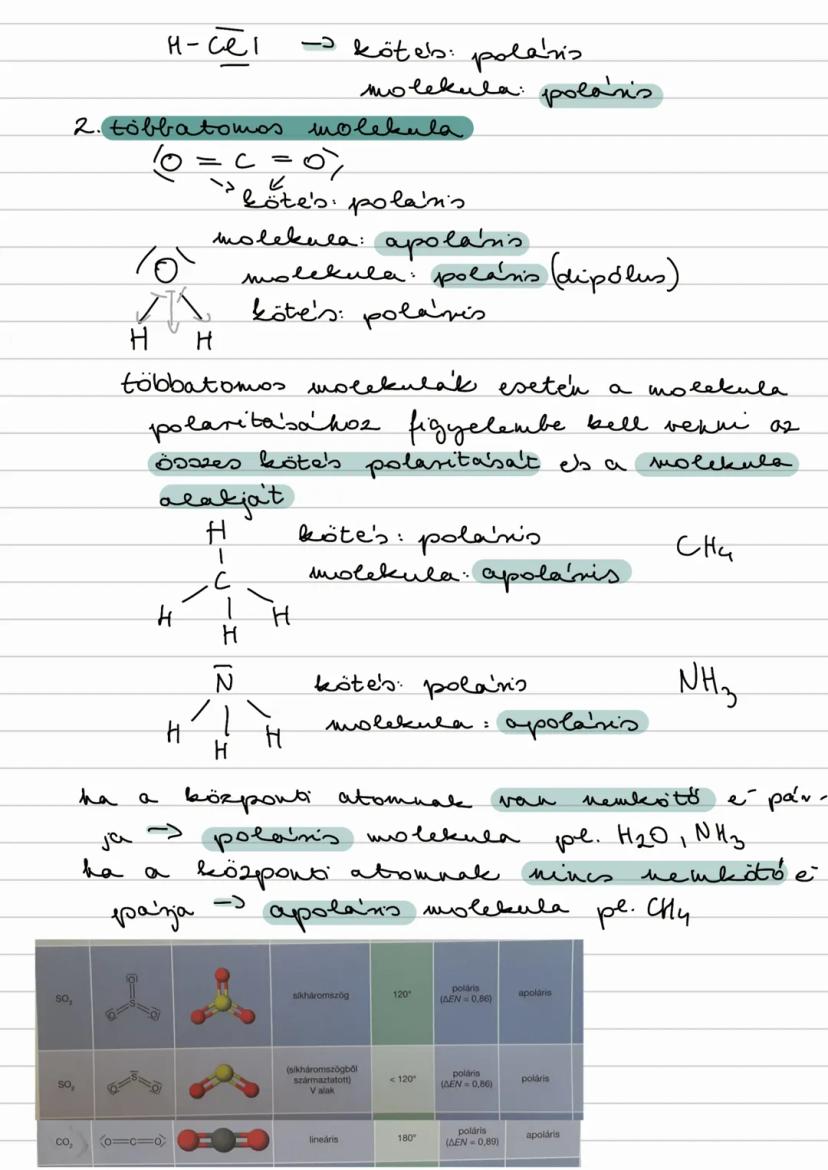 H-Cl → kötés: poláris
molekula: poláris
2. többatomos molekula
O = C = O
kötés: poláris
molekula: apoláris
O molekula: poláris (dipólus)
kötés: poláris
H H
többatomos molekulák esetén a molekula
polaritásához figyelembe kell venni az
összes kötés polaritását és a molekula
alakját
H kötés: poláris CH4
C molekula: apoláris
H H H
N kötés: poláris NH3
H H H molekula: apoláris
ha a központi atomnak van nemkötő e⁻ pár-
ja → poláris molekula pl. H2O, NH3
ha a központi atomnak nincs nemkötő e⁻
párja → apoláris molekula pl. CH4
SO3 O S O O síkháromszög 120° poláris (ΔEN = 0,86) apoláris
SO2 O S O (síkháromszögből származtatott) V alak < 120° poláris (ΔEN = 0,86) poláris
CO2 O=C=O lineáris 180° poláris (ΔEN = 0,89) apoláris